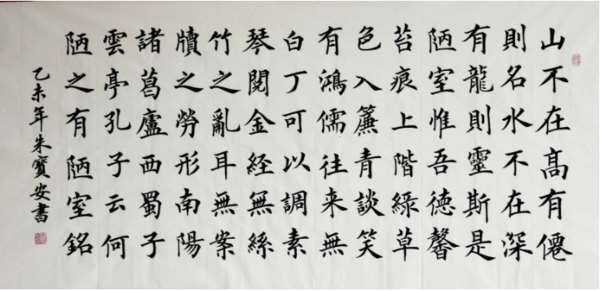 山不在髙有僊
則名水不在深
有龍則靈斯是
陋室惟吾德馨
苔痕上階綠草
色入簾青談笑
有鴻儒往来無
白丁可以調素
琴閱金経無絲
竹之亂耳無案
牘之勞形南陽
諸葛廬西蜀子
雲亭孔子云何
陋之有陋室銘
乙未年朱寶安書